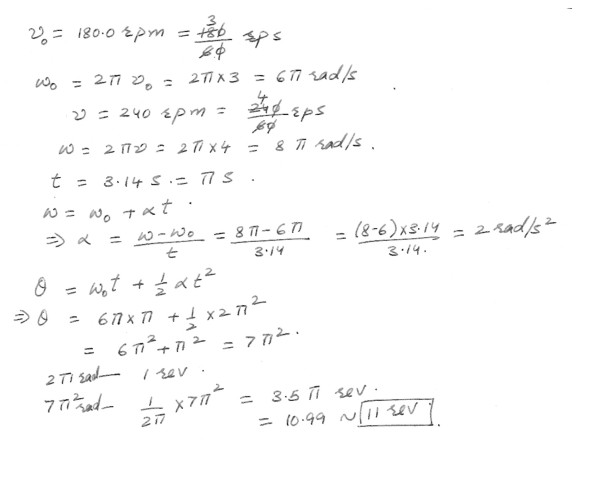 ν₀ = 180.0 rpm = 180/60 3 rps
ω₀ = 2π ν₀ = 2π×3 = 6π rad/s
ν = 240 rpm = 240/60 4 rps
ω = 2πν = 2π×4 = 8π rad/s.
t = 3.14 s. = π s.
ω = ω₀ + αt.
⇒ α = (ω-ω₀)/t = (8π-6π)/3.14 = (8-6)×3.14/3.14. = 2 rad/s²
θ = ω₀t + 1/2 αt²
⇒ θ = 6π×π + 1/2 × 2π²
= 6π²+π² = 7π².
2π rad— 1 rev.
7π² rad— 1/2π × 7π² = 3.5 π rev.
= 10.99 ~ 11 rev.